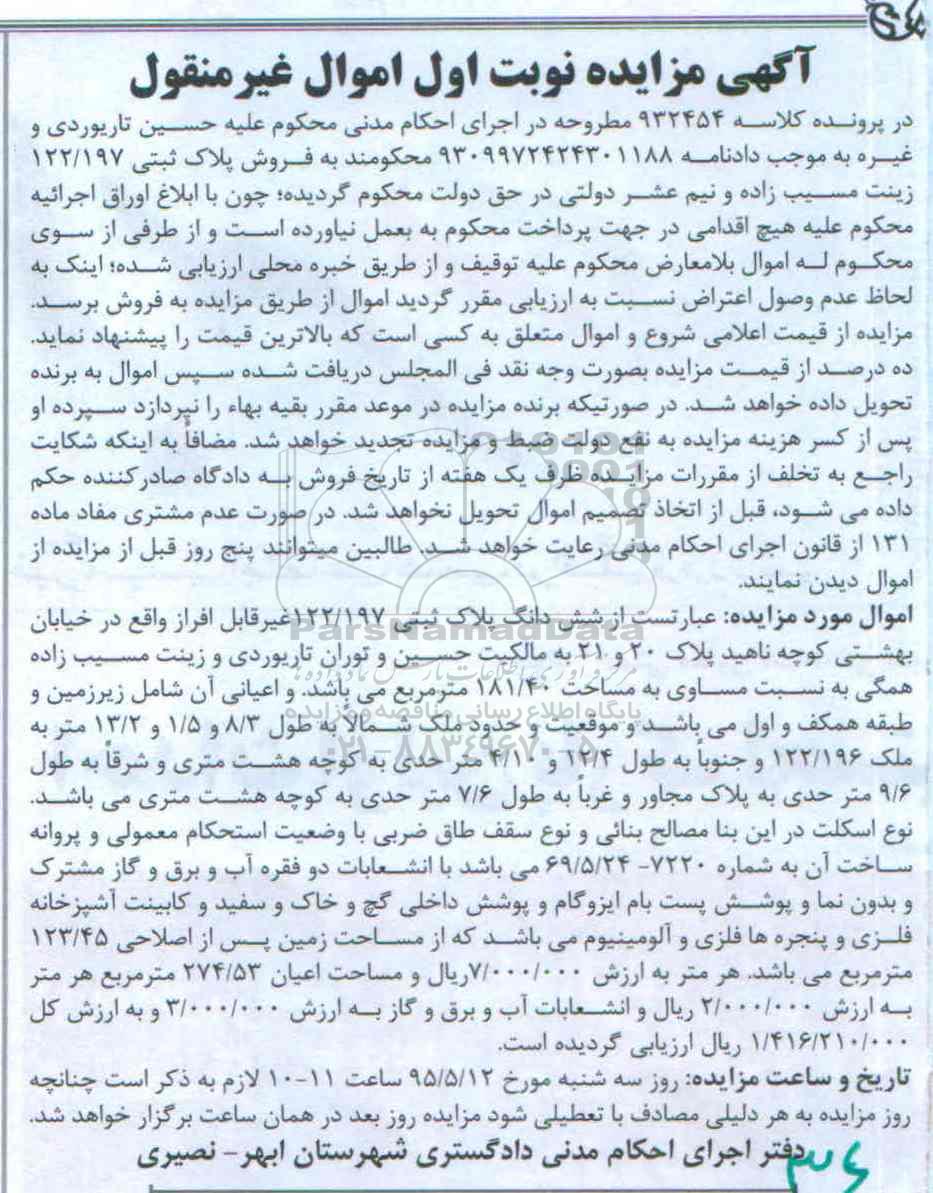 آگهی مزایده نوبت اول اموال غیرمنقول
در پرونده کلاسه ۹۳۲۴۵۴ مطروحه در اجرای احکام مدنی محکوم علیه حسین تاریوردی و
غیره به موجب دادنامه ۹۳۰۹۹۷۲۴۲۴۳۰۱۱۸۸ محکومند به فروش پلاک ثبتی ۱۲۲/۱۹۷
زینت مسیب زاده و نیم عشر دولتی در حق دولت محکوم گردیده؛ چون با ابلاغ اوراق اجرائیه
محکوم علیه هیچ اقدامی در جهت پرداخت محکوم به بعمل نیاورده است و از طرفی از سوی
محکوم له اموال بلامعارض محکوم علیه توقیف و از طریق خبره محلی ارزیابی شده؛ اینک به
لحاظ عدم وصول اعتراض نسبت به ارزیابی مقرر گردید اموال از طریق مزایده به فروش برسد.
مزایده از قیمت اعلامی شروع و اموال متعلق به کسی است که بالاترین قیمت را پیشنهاد نماید.
ده درصد از قیمت مزایده بصورت وجه نقد فی المجلس دریافت شده سپس اموال به برنده
تحویل داده خواهد شد. در صورتیکه برنده مزایده در موعد مقرر بقیه بهاء را نپردازد سپرده او
پس از کسر هزینه مزایده به نفع دولت ضبط و مزایده تجدید خواهد شد. مضافاً به اینکه شکایت
راجع به تخلف از مقررات مزایده ظرف یک هفته از تاریخ فروش به دادگاه صادرکننده حکم
داده می شود، قبل از اتخاذ تصمیم اموال تحویل نخواهد شد. در صورت عدم مشتری مفاد ماده
۱۳۱ از قانون اجرای احکام مدنی رعایت خواهد شد. طالبین میتوانند پنج روز قبل از مزایده از
اموال دیدن نمایند.
اموال مورد مزایده: عبارتست از شش دانگ پلاک ثبتی ۱۲۲/۱۹۷غیرقابل افراز واقع در خیابان
ParsNamadData
بهشتی کوچه ناهید پلاک ۲۰ و ۲۱ به مالکیت حسین و توران تاریوردی و زینت مسیب زاده
همگی به نسبت مساوی به مساحت ۱۸۱/۴۰ مترمربع می باشد. و اعیانی آن شامل زیرزمین و
پایگاه اطلاع رسانی مناقصه و مزایده
طبقه همکف و اول می باشد و موقعیت و حدود ملک شمالاً به طول ۸/۳ و ۱/۵ و ۱۳/۲ متر به
۰۲۱-۸۸۳۴۹۶۷۰-۵
ملک ۱۲۲/۱۹۶ و جنوباً به طول ۱۲/۴ و ۴/۱۰ متر حدی به کوچه هشت متری و شرقاً به طول
۹/۶ متر حدی به پلاک مجاور و غرباً به طول ۷/۶ متر حدی به کوچه هشت متری می باشد.
نوع اسکلت در این بنا مصالح بنائی و نوع سقف طاق ضربی با وضعیت استحکام معمولی و پروانه
ساخت آن به شماره ۷۲۲۰- ۶۹/۵/۲۴ می باشد با انشعابات دو فقره آب و برق و گاز مشترک
و بدون نما و پوشش پست بام ایزوگام و پوشش داخلی گچ و خاک و سفید و کابینت آشپزخانه
فلزی و پنجره ها فلزی و آلومینیوم می باشد که از مساحت زمین پس از اصلاحی ۱۲۳/۴۵
مترمربع می باشد. هر متر به ارزش ۷/۰۰۰/۰۰۰ریال و مساحت اعیان ۲۷۴/۵۳ مترمربع هر متر
به ارزش ۲/۰۰۰/۰۰۰ ریال و انشعابات آب و برق و گاز به ارزش ۳/۰۰۰/۰۰۰ و به ارزش کل
۱/۴۱۶/۲۱۰/۰۰۰ ریال ارزیابی گردیده است.
تاریخ و ساعت مزایده: روز سه شنبه مورخ ۹۵/۵/۱۲ ساعت ۱۱-۱۰ لازم به ذکر است چنانچه
روز مزایده به هر دلیلی مصادف با تعطیلی شود مزایده روز بعد در همان ساعت برگزار خواهد شد.
دفتر اجرای احکام مدنی دادگستری شهرستان ابهر- نصیری